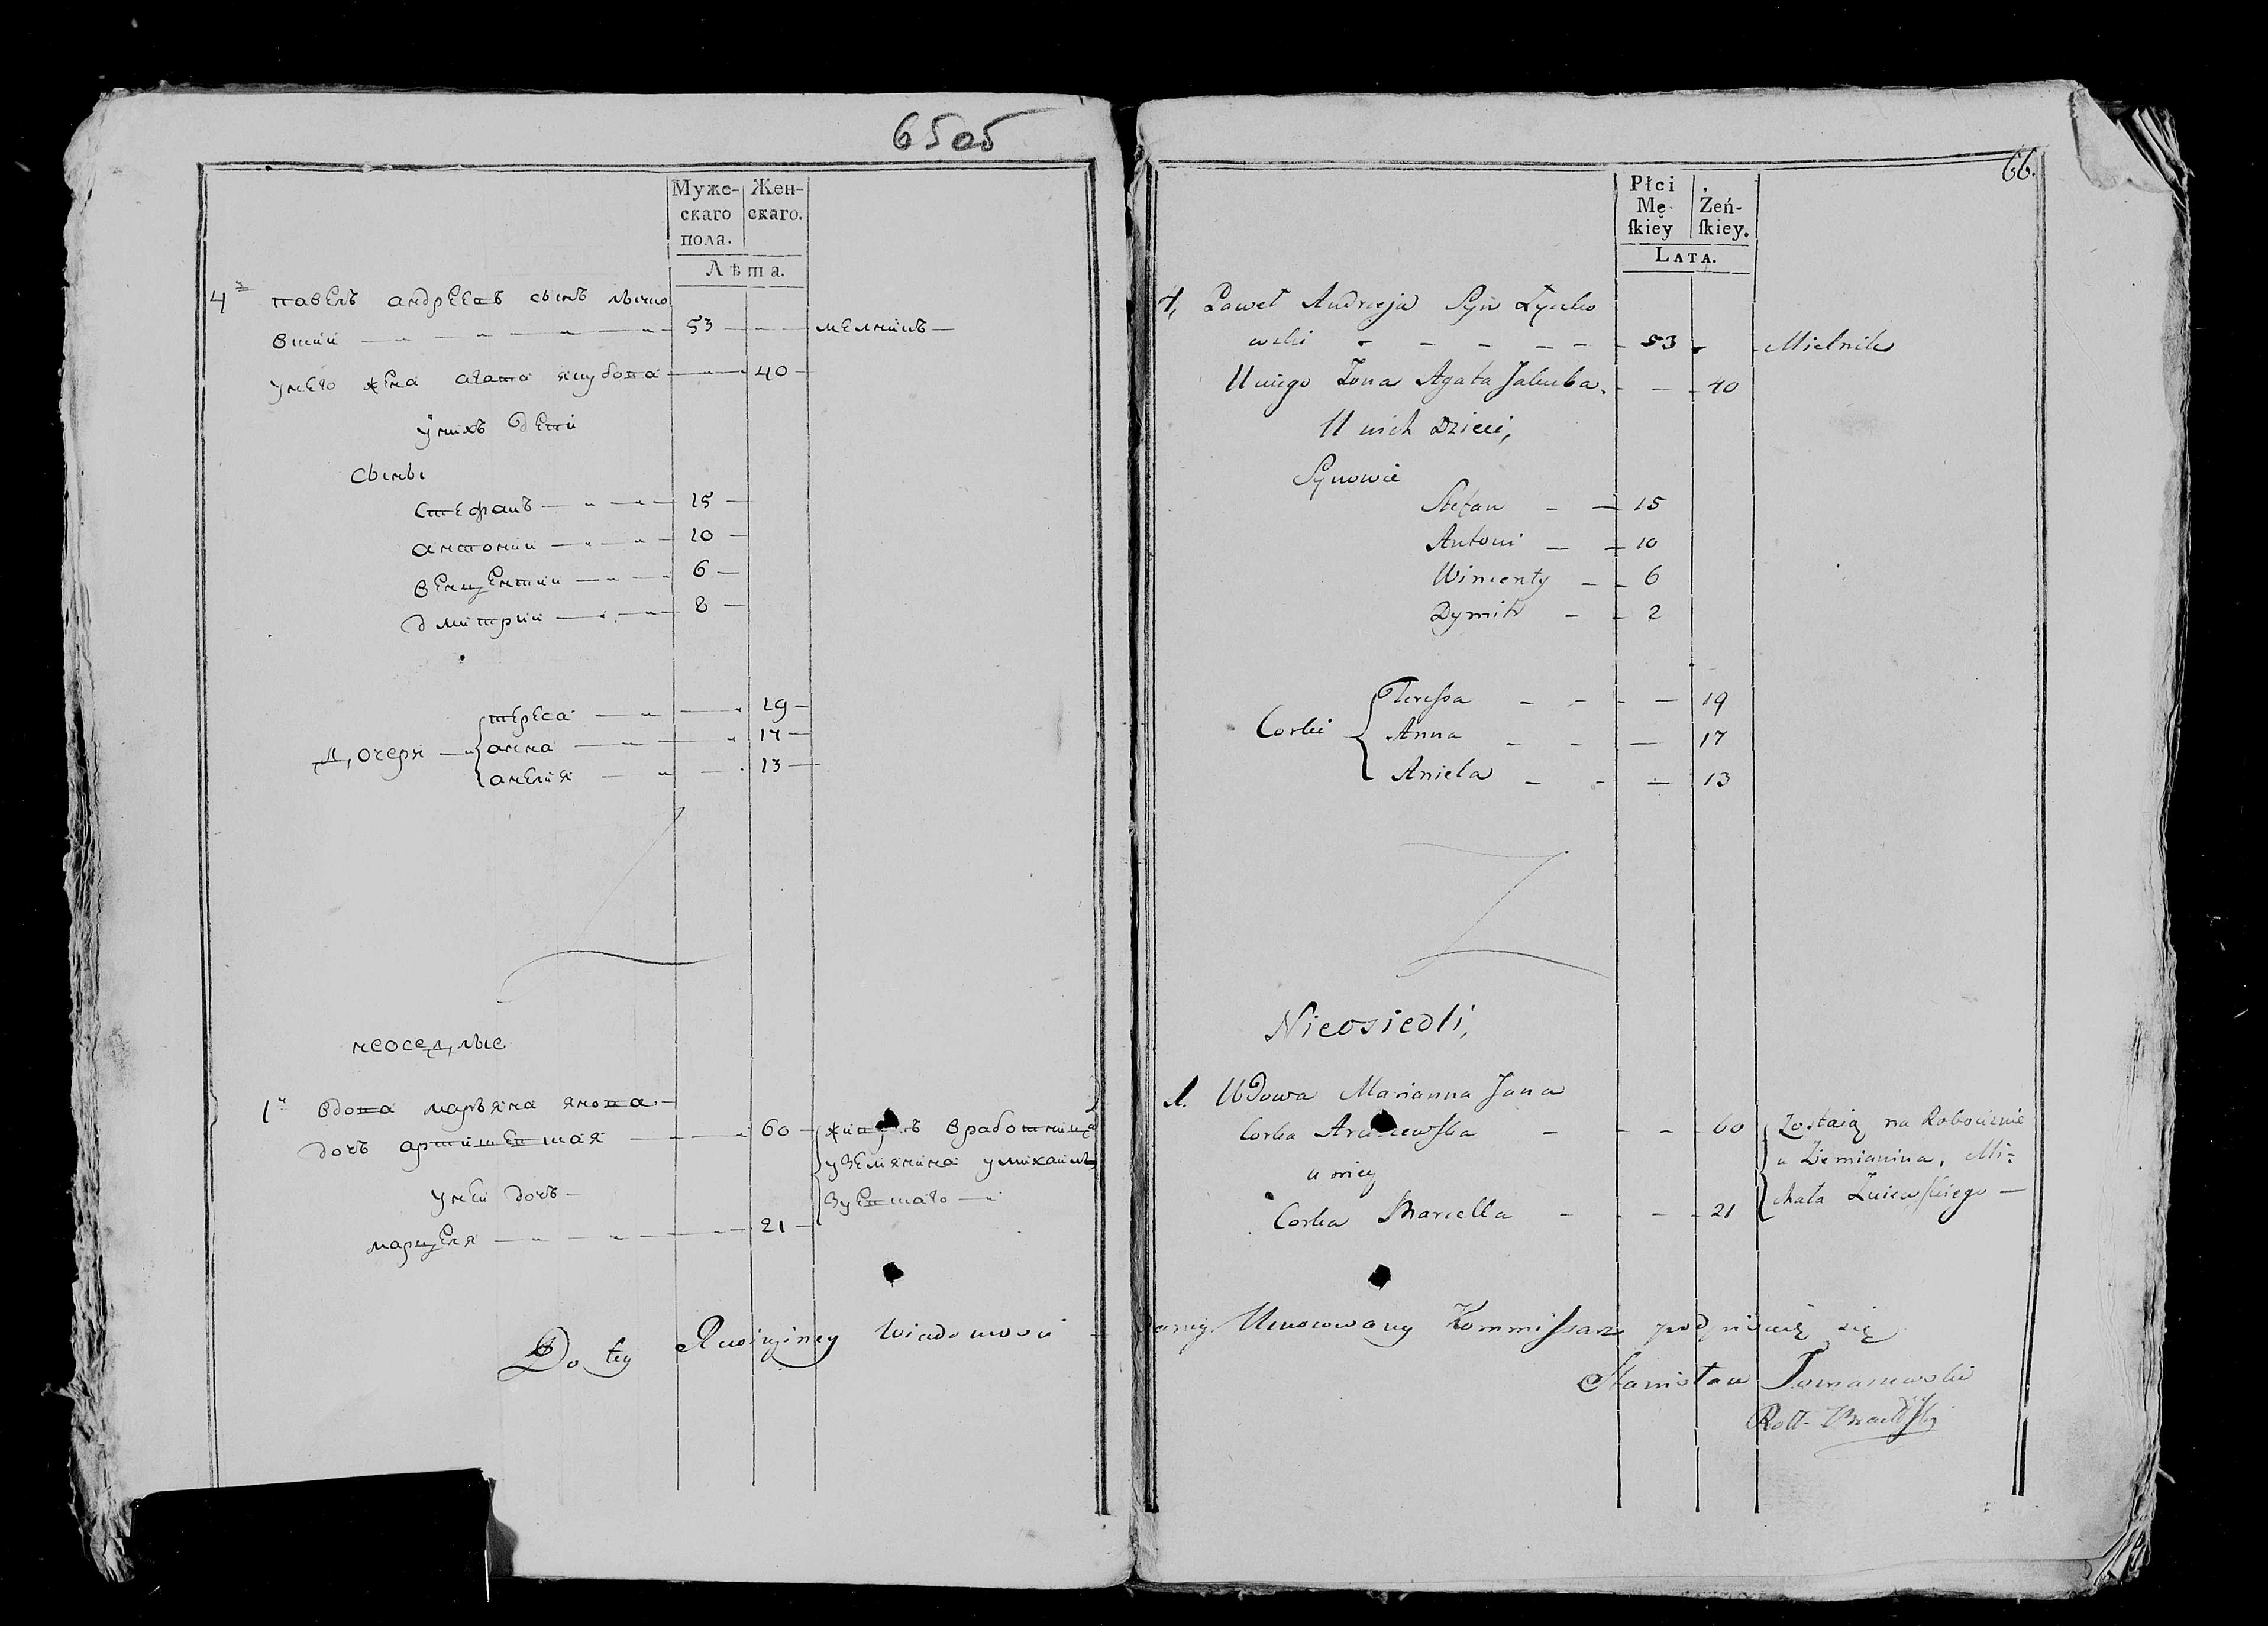 65об
Муже-
скаго
пола.
Жен-
скаго.
Лѣта.
4 павелъ андреевъ сынъ лычко
вский 53 мелникъ
у него жена агата якубова 40
у нихъ дети
сыны
стефанъ 15
антоний 10
венцентий 6
дмитрий 2
дочери
тереса 19
анна 17
анеля 13
неоседлые
1 вдова марьяна янова
дочъ 60 живутъ в работници
у земянина у михаила
у ней дочъ
марцеля 21
Do tey Rewizyiney Wiadomosci
66.
Płci
Mę-
ſkiey
Żeń-
ſkiey.
Lata.
4, Paweł Andrzeja Syn Łyczko
wski 53 Mielnik
U niego Zona Agata Jakuba 40
U nich Dzieci,
Synowie
Stefan 15
Antoni 10
Wincenty 6
Dymitr 2
Corki
Teressa 19
Anna 17
Aniela 13
Nieosiedli,
1. Wdowa Marianna Jana
Corka 60 Zostaią na Robociznie
u Ziemianina, Mi-
u niey
chała Zuiewskiego
Corka Marcella 21
Umocowany Kommissarz podpisuię się
Stanisław Tomaszewski